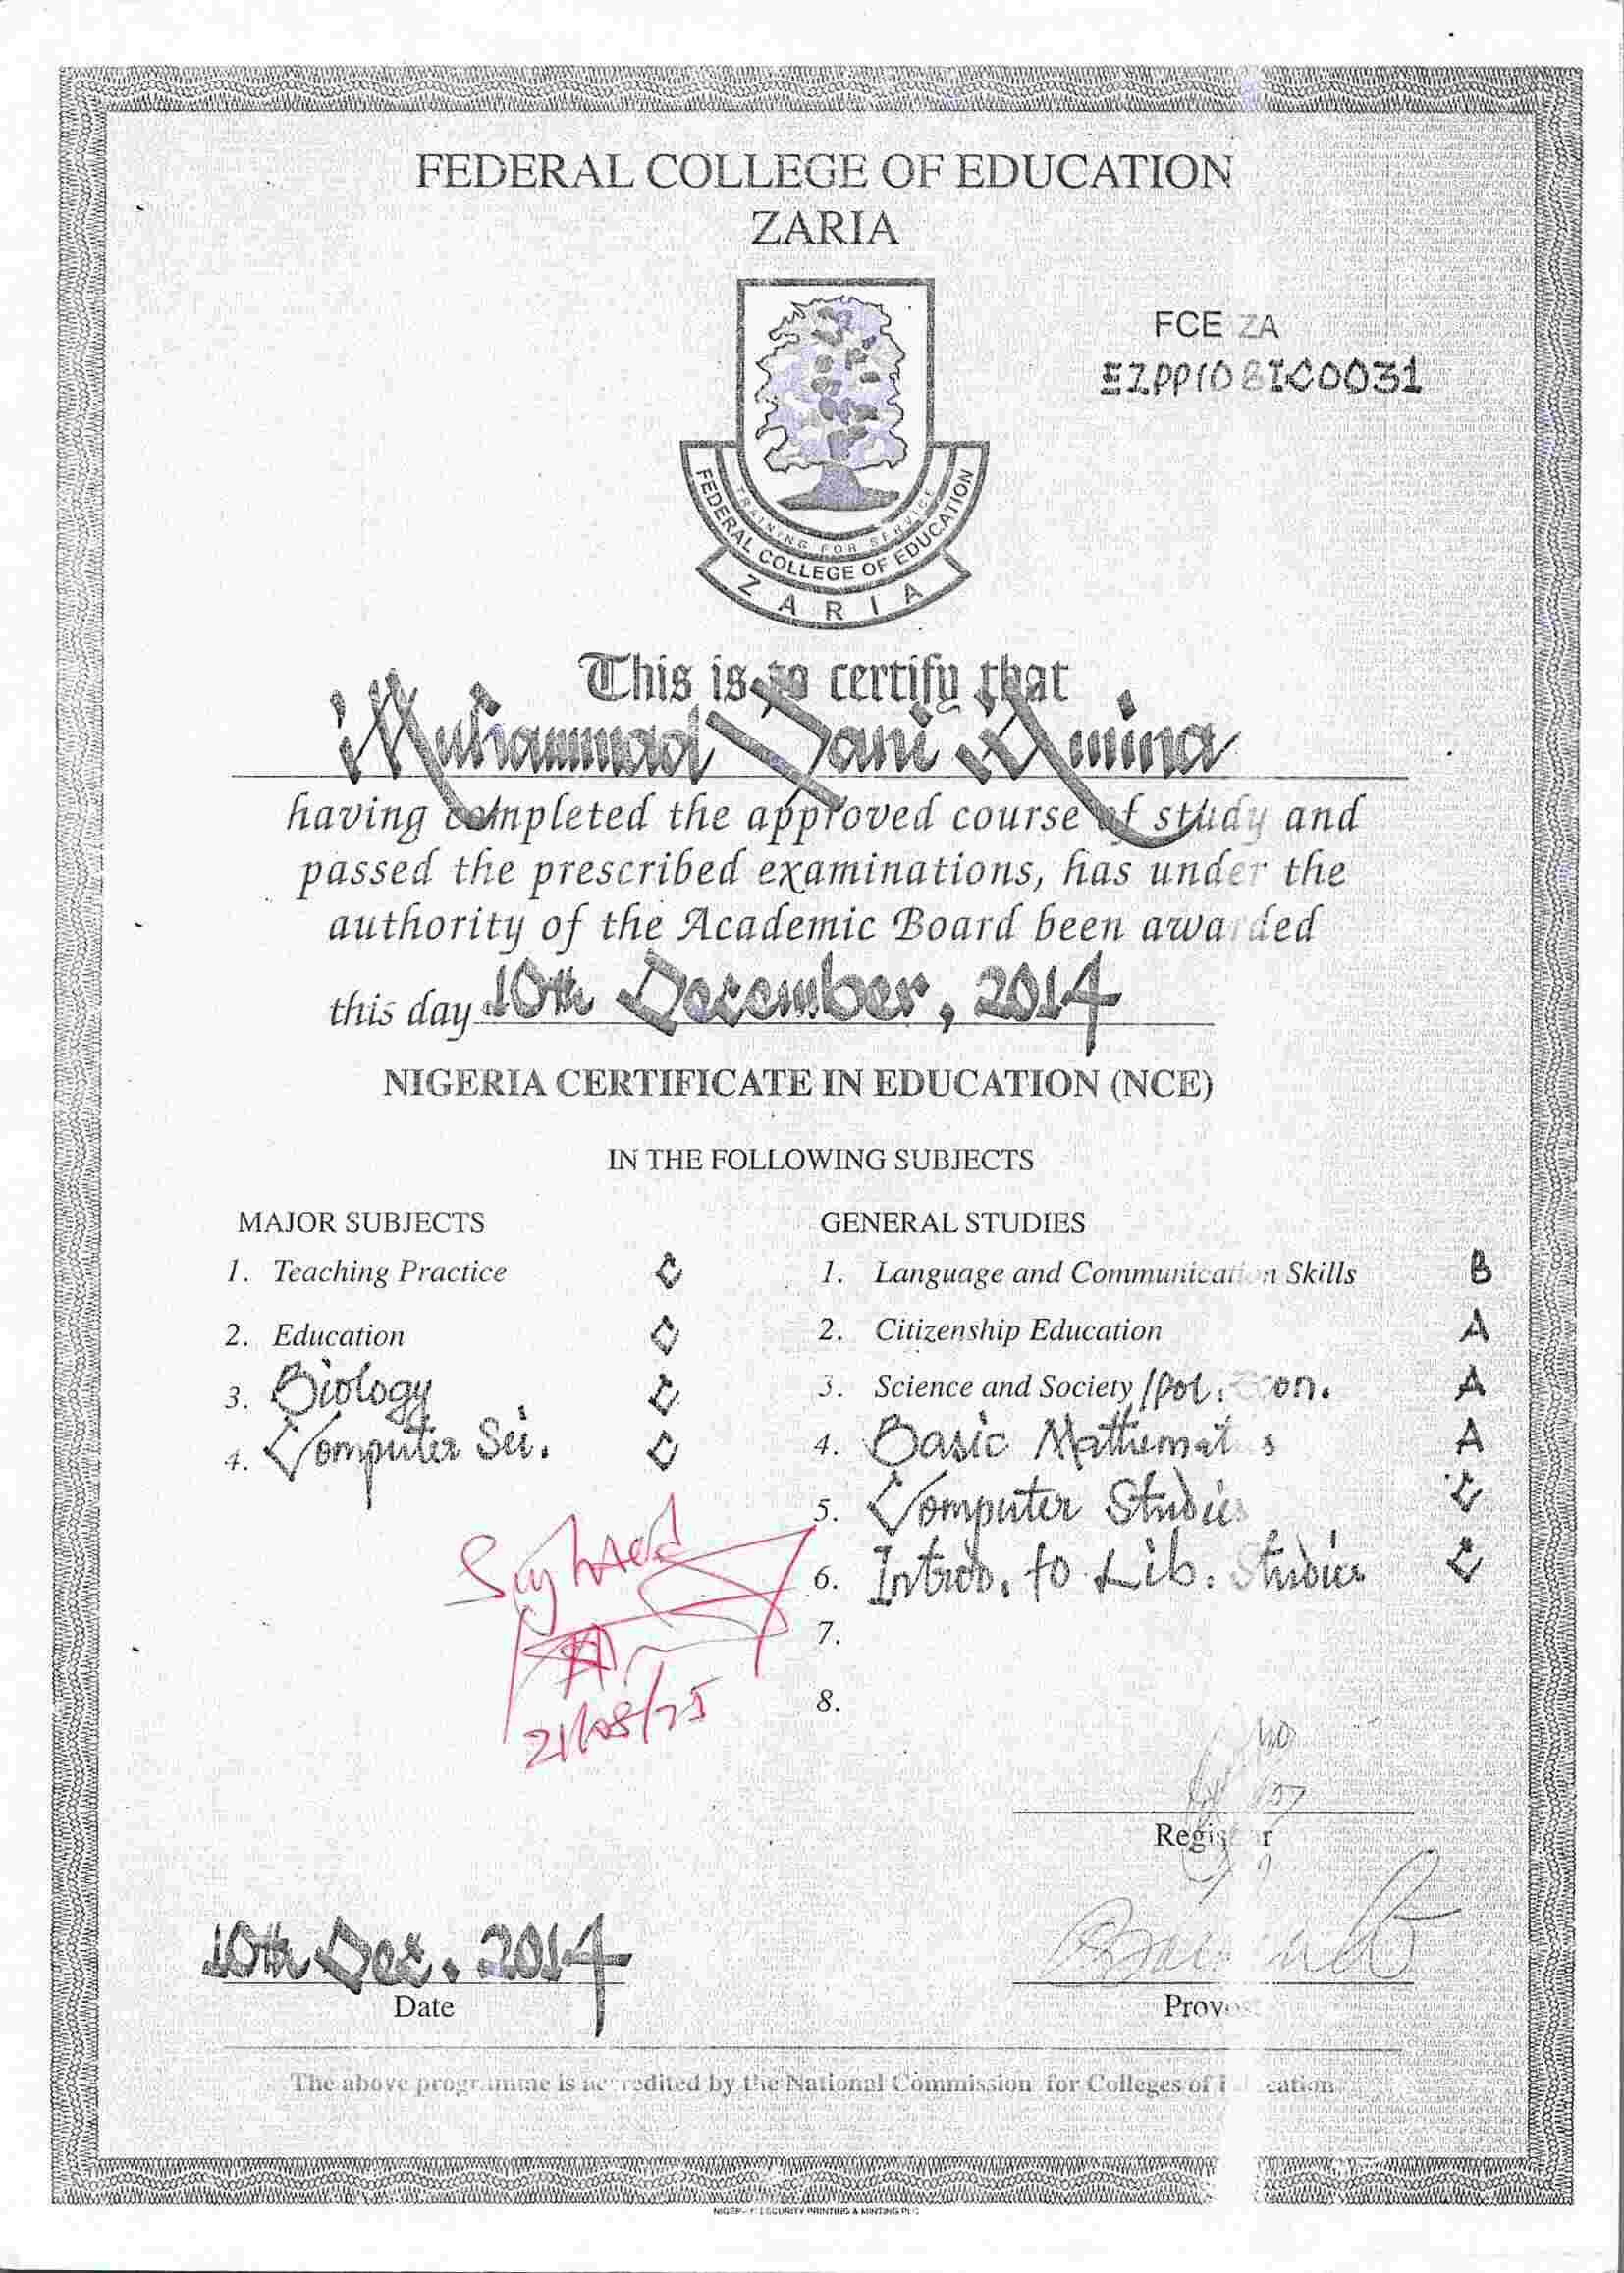 FEDERAL COLLEGE OF EDUCATION
ZARIA
FCE ZA
TRAINING FOR SERVICE
FEDERAL COLLEGE OF EDUCATION
ZARIA
This is to certify that
Muhammad Sani Amina
having completed the approved course of study and
passed the prescribed examinations, has under the
authority of the Academic Board been awarded
this day 10th December, 2014
NIGERIA CERTIFICATE IN EDUCATION (NCE)
IN THE FOLLOWING SUBJECTS
MAJOR SUBJECTS
1. Teaching Practice C
2. Education C
3. Biology C
4. Computer Sci. C
GENERAL STUDIES
1. Language and Communication Skills B
2. Citizenship Education A
3. Science and Society /Pol. Econ. A
4. Basic Mathematics A
5. Computer Studies C
6. Introd. to Lib. Studies C
7.
8.
Registrar
10th Dec. 2014
Date
Provost
The above programme is accredited by the National Commission for Colleges of Education
NIGERIAN SECURITY PRINTING & MINTING PLC